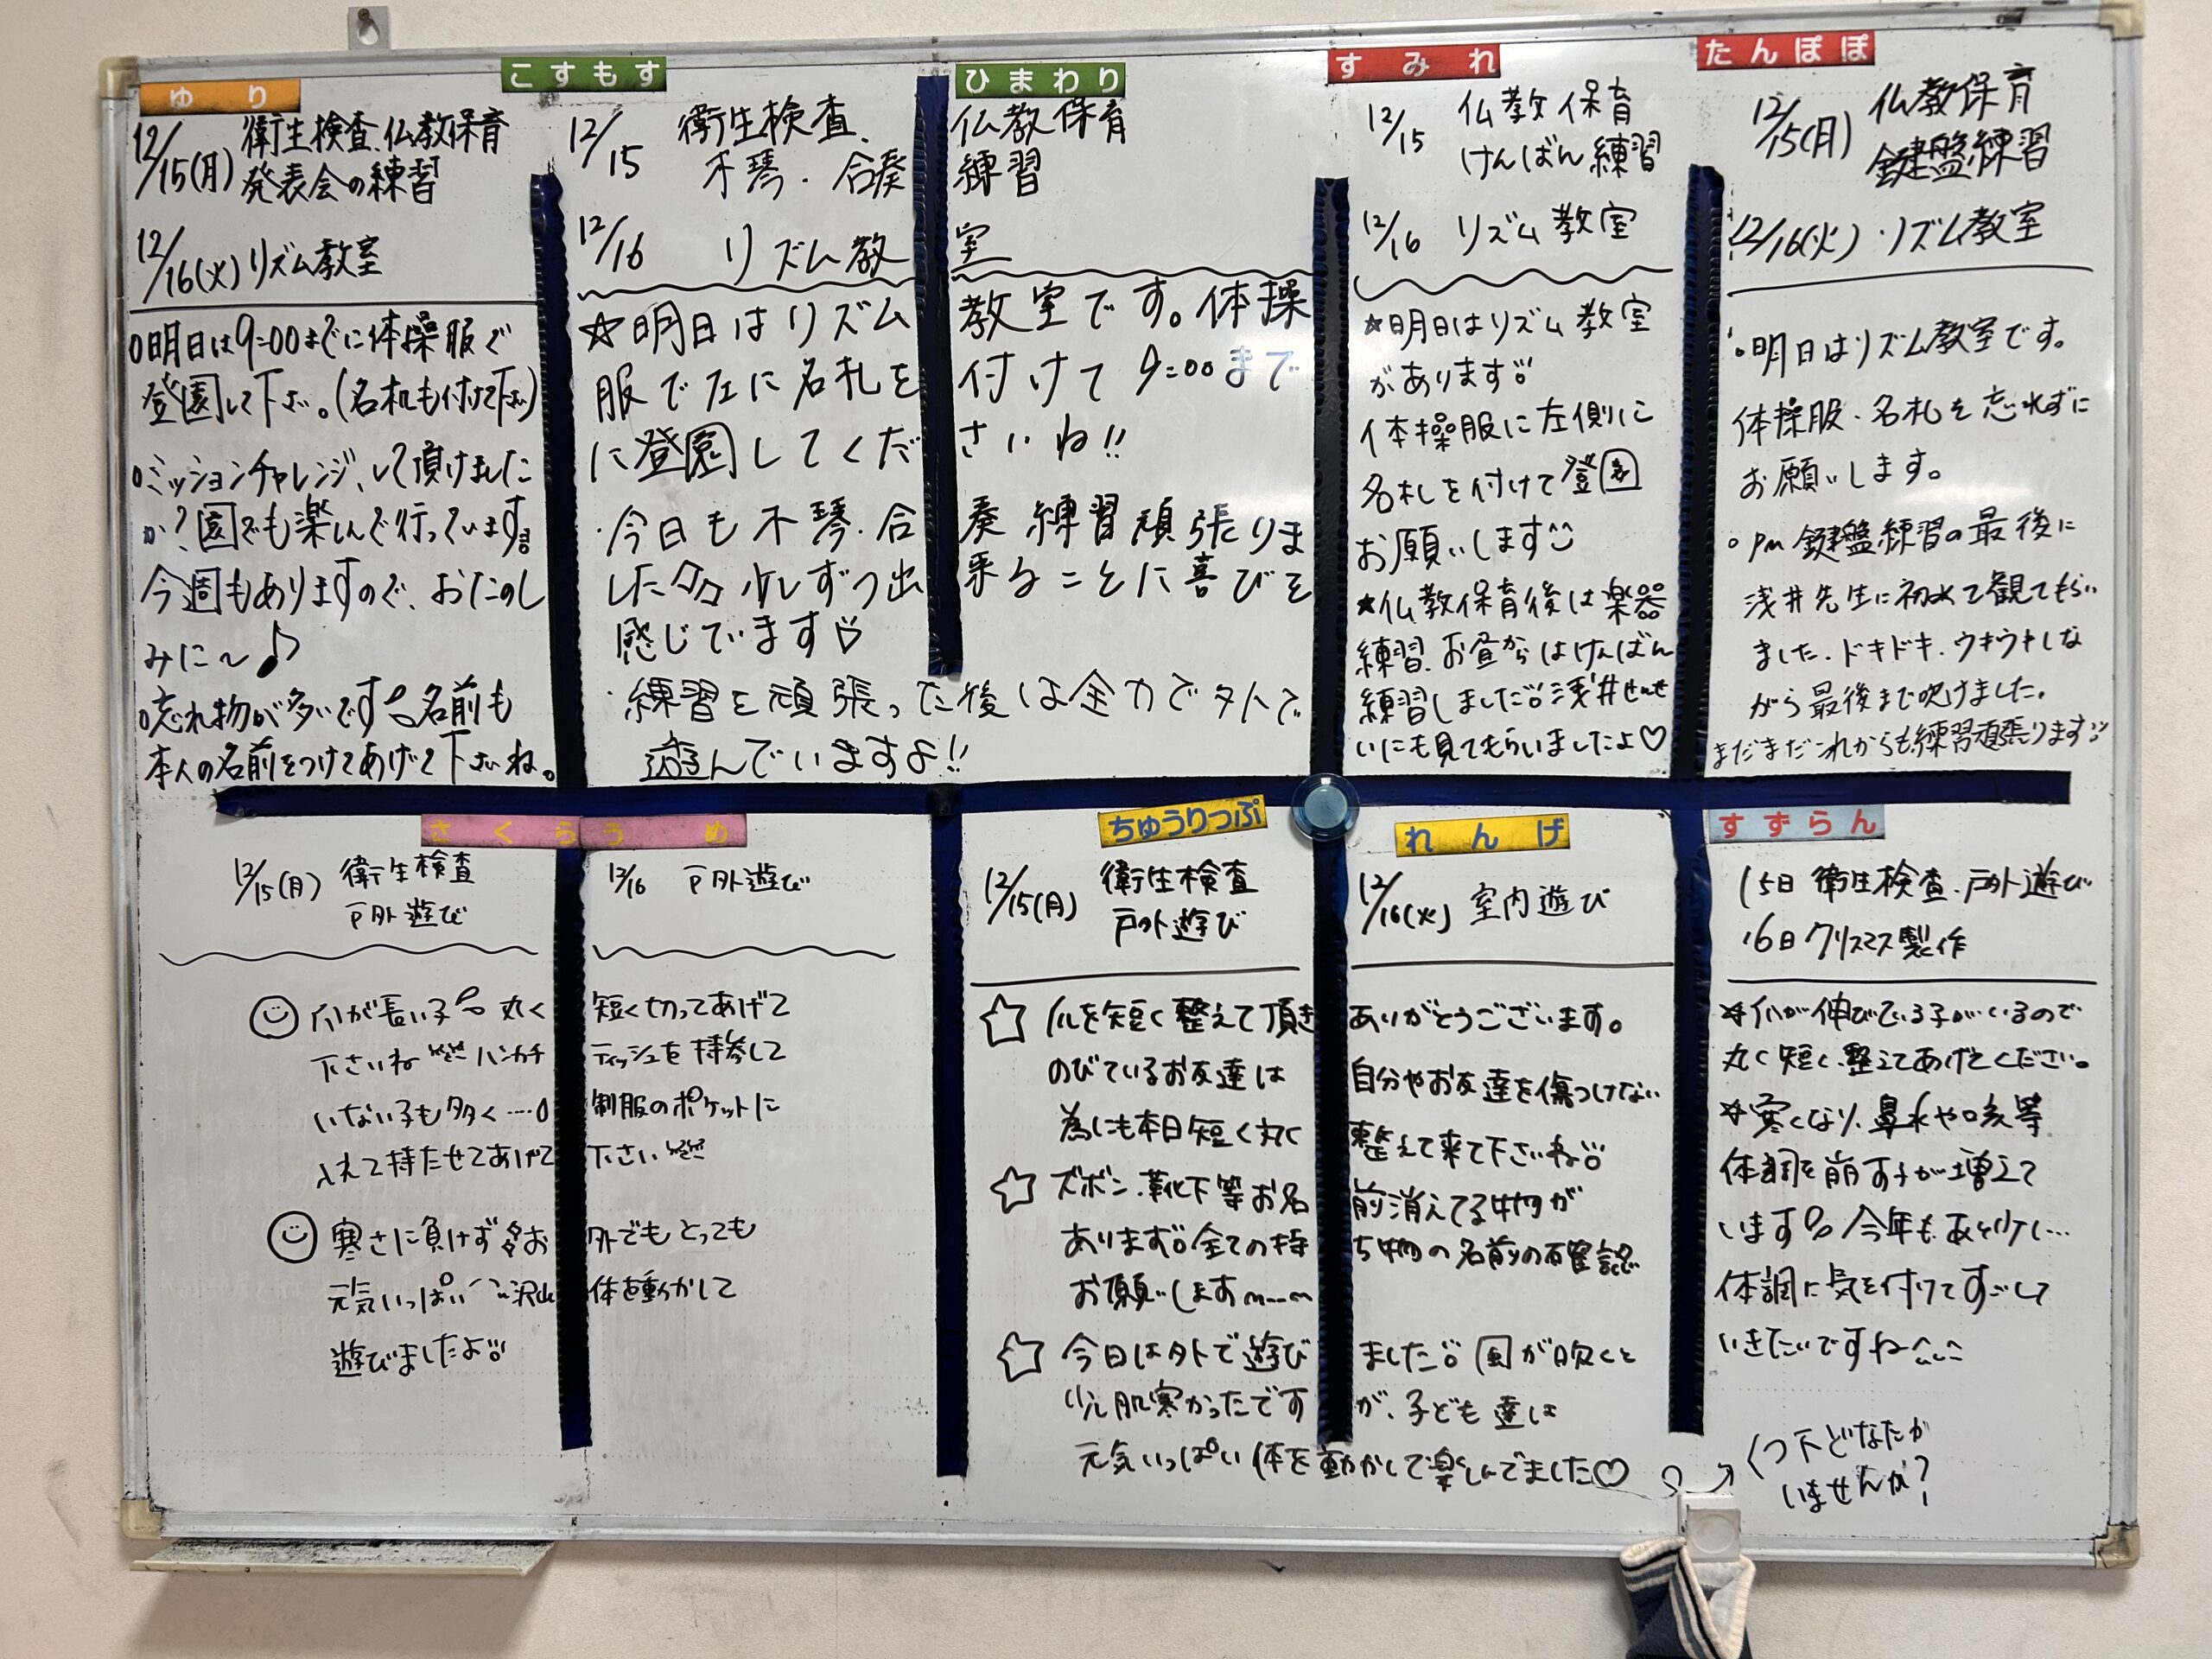 ゆり
12/15(月) 衛生検査.仏教保育
発表会の練習
12/16(火) リズム教室
○明日は9:00までに体操服で
登園して下さい。(名札も付けて下さい)
○ミッションチャレンジ、して頂けました
か?園でも楽しんで行っています
今週もありますので、おたのし
みに〜♪
○忘れ物が多いです 名前も
本人の名前をつけてあげて下さいね。
こすもす ひまわり
12/15 衛生検査. 仏教保育
木琴. 合奏練習
12/16 リズム教室
☆明日はリズム教室です。体操
服で左に名札を付けて9:00まで
に登園してくださいね!!
・今日も木琴.合奏練習頑張りま
した 少しずつ出来ることに喜びを
感じています♡
・練習を頑張った後は全力で外で
遊んでいますよ!!
すみれ
12/15 仏教保育
けんばん練習
12/16 リズム教室
★明日はリズム教室
があります
体操服に左側に
名札を付けて登園
お願いします
★仏教保育後は楽器
練習.お昼からはけんばん
練習しました 浅井せんせ
いにも見てもらいましたよ♡
たんぽぽ
12/15(月) 仏教保育
鍵盤練習
12/16(火) ・リズム教室
○明日はリズム教室です。
体操服.名札を忘れずに
お願いします。
○pm 鍵盤練習の最後に
浅井先生に初めて観てもらい
ました.ドキドキ.ウキウキしな
がら最後まで吹けました。
まだまだこれからも練習頑張ります
さくら うめ
12/15(月) 衛生検査 12/16 戸外遊び
戸外遊び
爪が長い子 丸く短く切ってあげて
下さいね ハンカチティッシュを持参して
いない子も多く…。制服のポケットに
入れて持たせてあげて下さい
寒さに負けずお外でもとっても
元気いっぱい 沢山体を動かして
遊びましたよ
ちゅうりっぷ れんげ
12/15(月) 衛生検査 12/16(火) 室内遊び
戸外遊び
☆ 爪を短く整えて頂きありがとうございます。
のびているお友達は自分やお友達を傷つけない
為にも本日短く丸く整えて来て下さいね
☆ ズボン.靴下等お名前消えてる物が
あります 全ての持ち物の名前の確認
お願いしますm--m
☆ 今日は外で遊びました 風が吹くと
少し肌寒かったですが、子ども達は
元気いっぱい体を動かして楽しんでました♡
すずらん
15日 衛生検査.戸外遊び
16日 クリスマス製作
*爪が伸びている子がいるので
丸く短く整えてあげてください。
*寒くなり、鼻水や咳等
体調を崩す子が増えて
います 今年もあと少し…
体調に気を付けてすごして
いきたいですね
くつ下どなたか
いませんか?